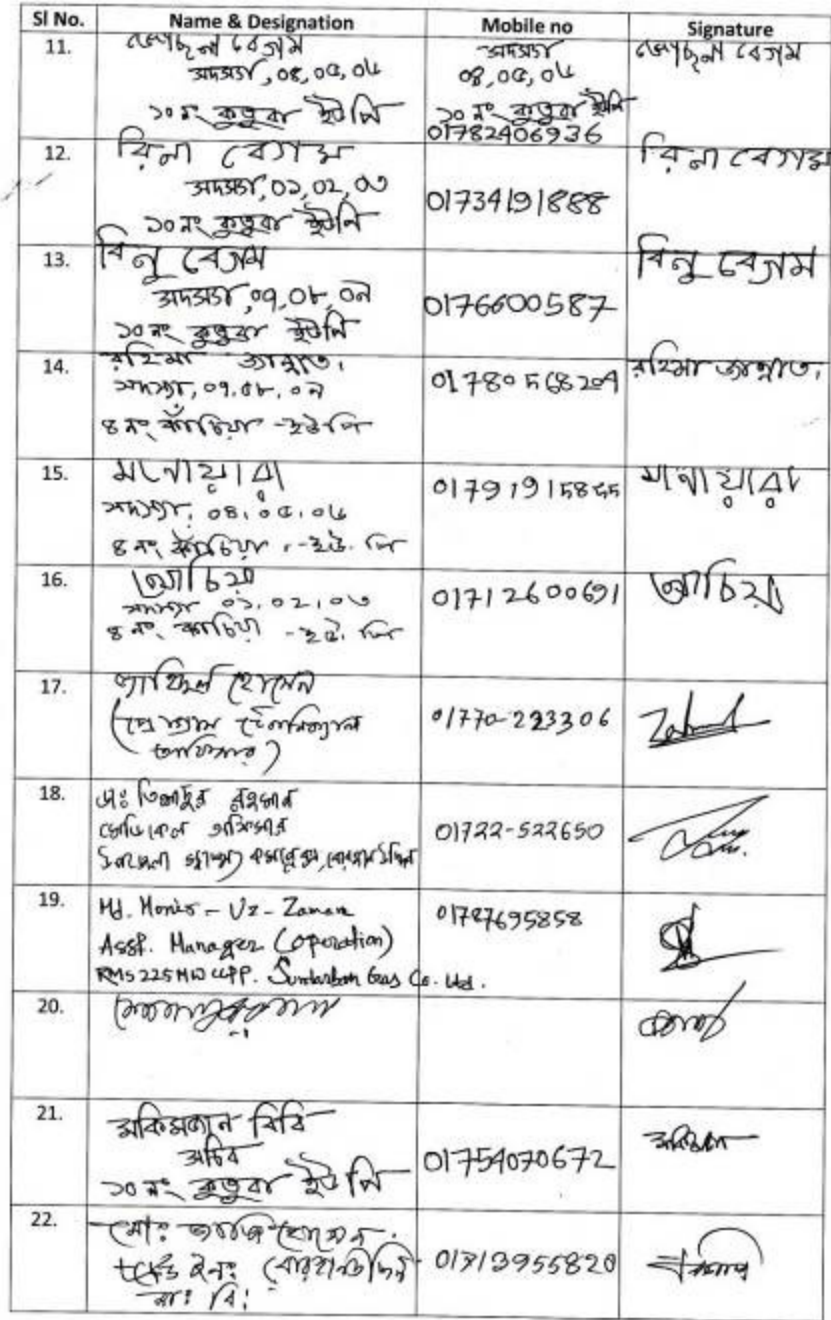 Sl No. Name & Designation Mobile no Signature
11. জোছনা বেগম
সদস্যা, ০৪, ০৫, ০৬
১০ নং কুতুবা ইউপি
সদস্যা
০৪, ০৫, ০৬
১০ নং কুতুবা ইউপি
01782406936
জোছনা বেগম
12. রিনা বেগম
সদস্যা, ০১, ০২, ০৩
১০ নং কুতুবা ইউপি
01734191888
রিনা বেগম
13. বিনু বেগম
সদস্যা, ০৭, ০৮, ০৯
১০ নং কুতুবা ইউপি
0176600587
বিনু বেগম
14. রহিমা জান্নাত।
সদস্যা, ০৭, ০৮, ০৯
৪ নং কাঁচিয়া - ইউপি
রহিমা জান্নাত।
15. মনোয়ারা
সদস্যা, ০৪, ০৫, ০৬
৪ নং কাঁচিয়া - ইউ. পি
মনোয়ারা
16. আচিয়া
সদস্যা ০১, ০২, ০৩
৪ নং কাচিয়া - ইউ. পি
01712600691
আচিয়া
17. হোসেন
01770-223306
18. ডাঃ রহমান
মেডিকেল অফিসার
উপজেলা স্বাস্থ্য কমপ্লেক্স,
01722-522650
19. Md. Monir - Uz - Zaman
Asst. Manager (Operation)
RMS 225 MW CCPP. Sundarban Gas Co. Ltd.
01727695858
20.
21. বিবি
সচিব
১০ নং কুতুবা ইউপি
01754070672
22. মোঃ হোসেন
01713955820